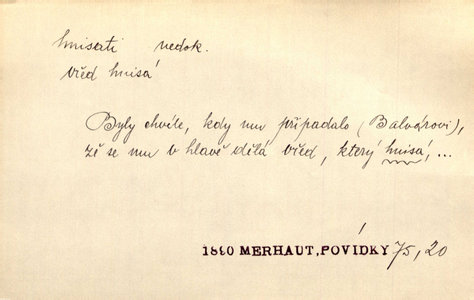 hnisati nedok.
vřed hnisá
Byly chvíle, kdy mu připadalo (Balvárovi),
že se mu v hlavě dělá vřed, který hnisá, ...
1890 MERHAUT, POVÍDKY 75, 20